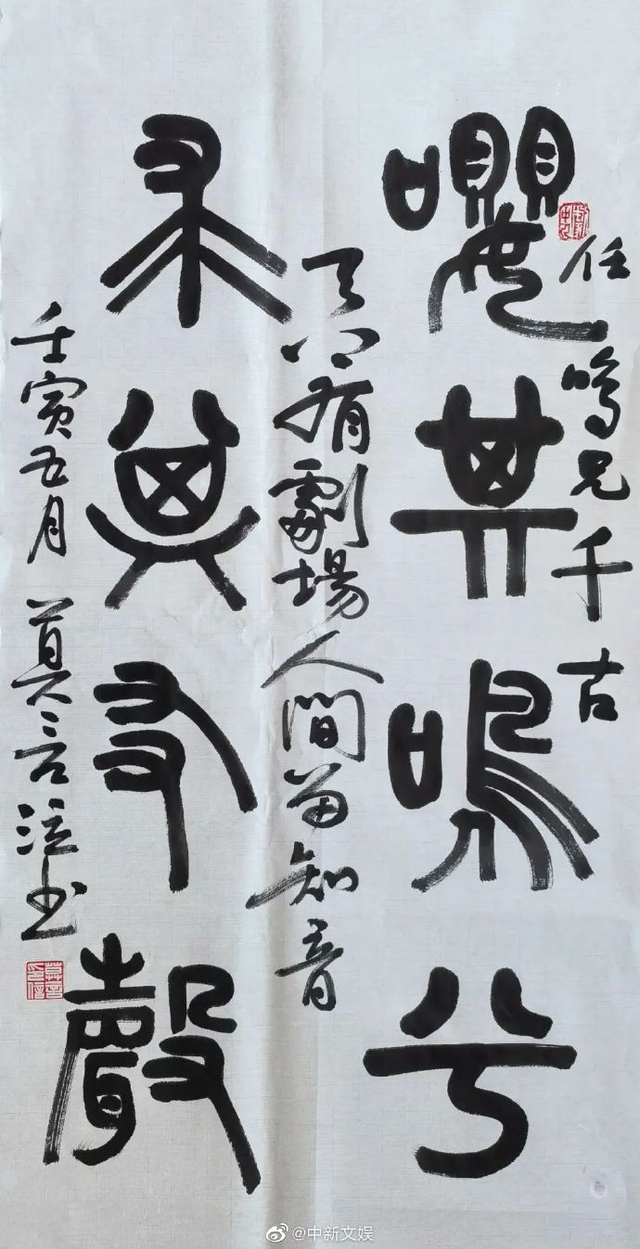 任鳴兄千古
嚶其鳴兮
天有劇場人間留知音
求其友聲
壬寅五月 莫言泣书
@中新文娱